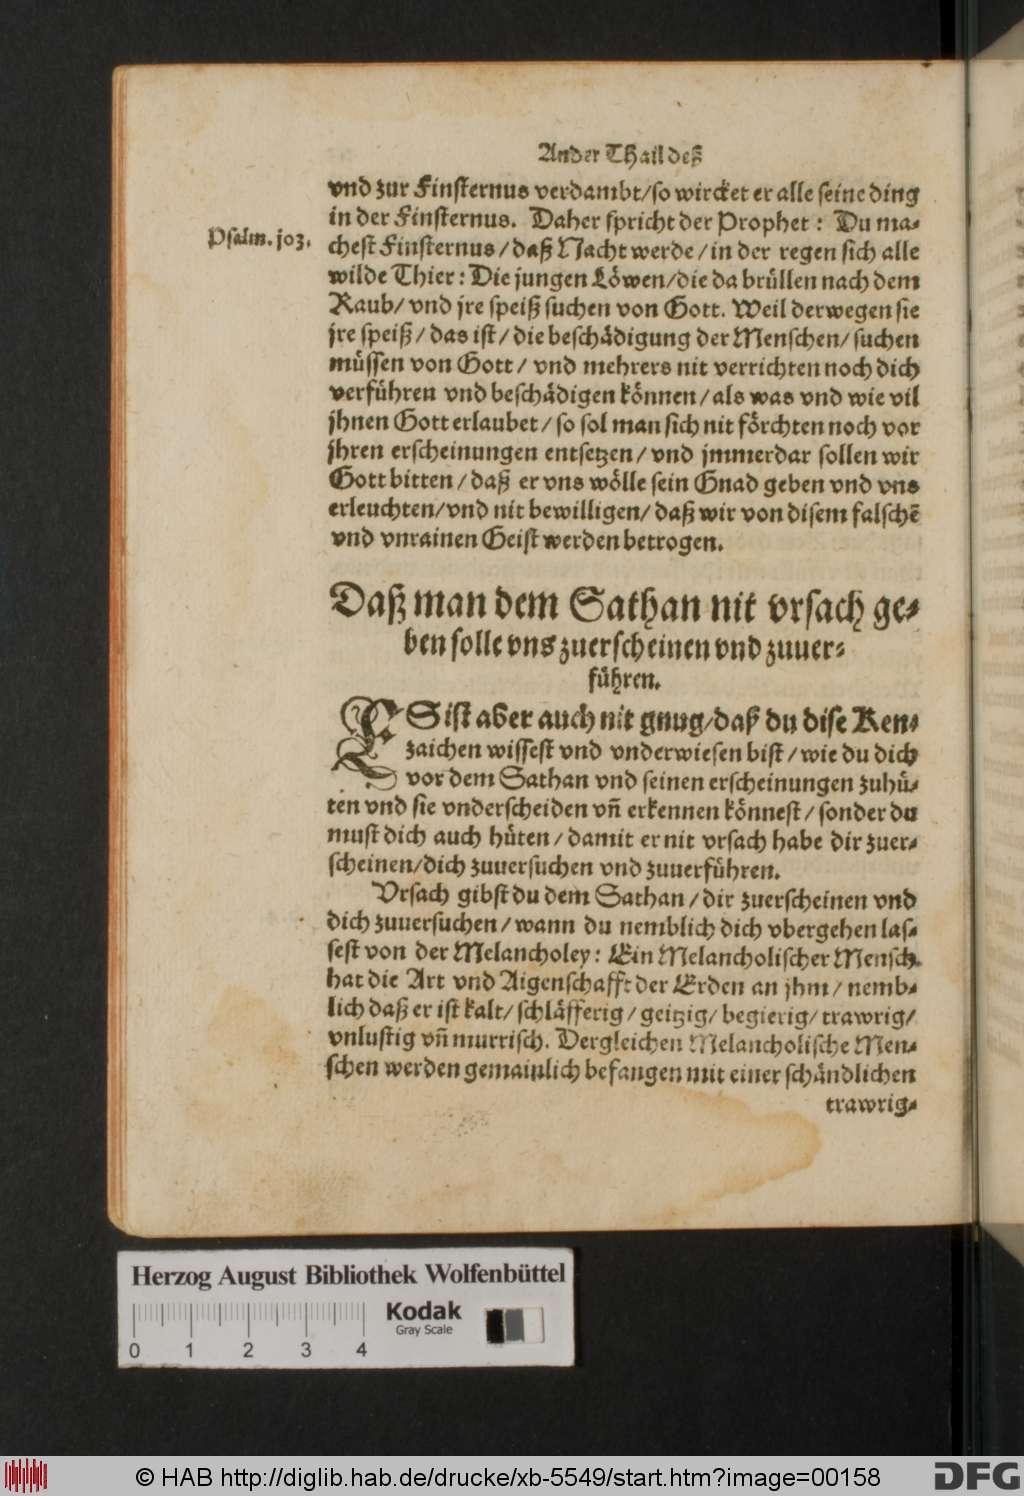 Ander Thail deß
vnd zur Finsternus verdambt/so wircket er alle seine ding
in der Finsternus. Daher spricht der Prophet: Du ma-
Psalm. 103.
chest Finsternus/daß Nacht werde/in der regen sich alle
wilde Thier: Die jungen Löwen/die da brüllen nach dem
Raub/ vnd jre speiß suchen von Gott. Weil derwegen sie
jre speiß/ das ist/ die beschädigung der Menschen/ suchen
müssen von Gott/ vnd mehrers nit verrichten noch dich
verführen vnd beschädigen können/als was vnd wie vil
jhnen Gott erlaubet/ so sol man sich nit förchten noch vor
jhren erscheinungen entsetzen/ vnd jmmerdar sollen wir
Gott bitten/ daß er vns wölle sein Gnad geben vnd vns
erleuchten/vnd nit bewilligen/daß wir von disem falschē
vnd vnrainen Geist werden betrogen.
Daß man dem Sathan nit vrsach ge-
ben solle vns zuerscheinen vnd zuuer-
führen.
ES ist aber auch nit gnug/daß du dise Ken-
zaichen wissest vnd vnderwiesen bist/wie du dich
vor dem Sathan vnd seinen erscheinungen zuhü-
ten vnd sie vnderscheiden vñ erkennen könnest/ sonder du
must dich auch hüten/damit er nit vrsach habe dir zuer-
scheinen/dich zuuersuchen vnd zuuerführen.
Vrsach gibst du dem Sathan/dir zuerscheinen vnd
dich zuuersuchen/wann du nemblich dich vbergehen las-
sest von der Melancholey: Ein Melancholischer Mensch
hat die Art vnd Aigenschafft der Erden an jhm/ nemb-
lich daß er ist kalt/ schläfferig/ geitzig/ begierig/ trawrig/
vnlustig vñ murrisch. Dergleichen Melancholische Men-
schen werden gemainlich befangen mit einer schändlichen
trawrig-
Herzog August Bibliothek Wolfenbüttel
Kodak
Gray Scale
0 1 2 3 4
© HAB http://diglib.hab.de/drucke/xb-5549/start.htm?image=00158
DFG